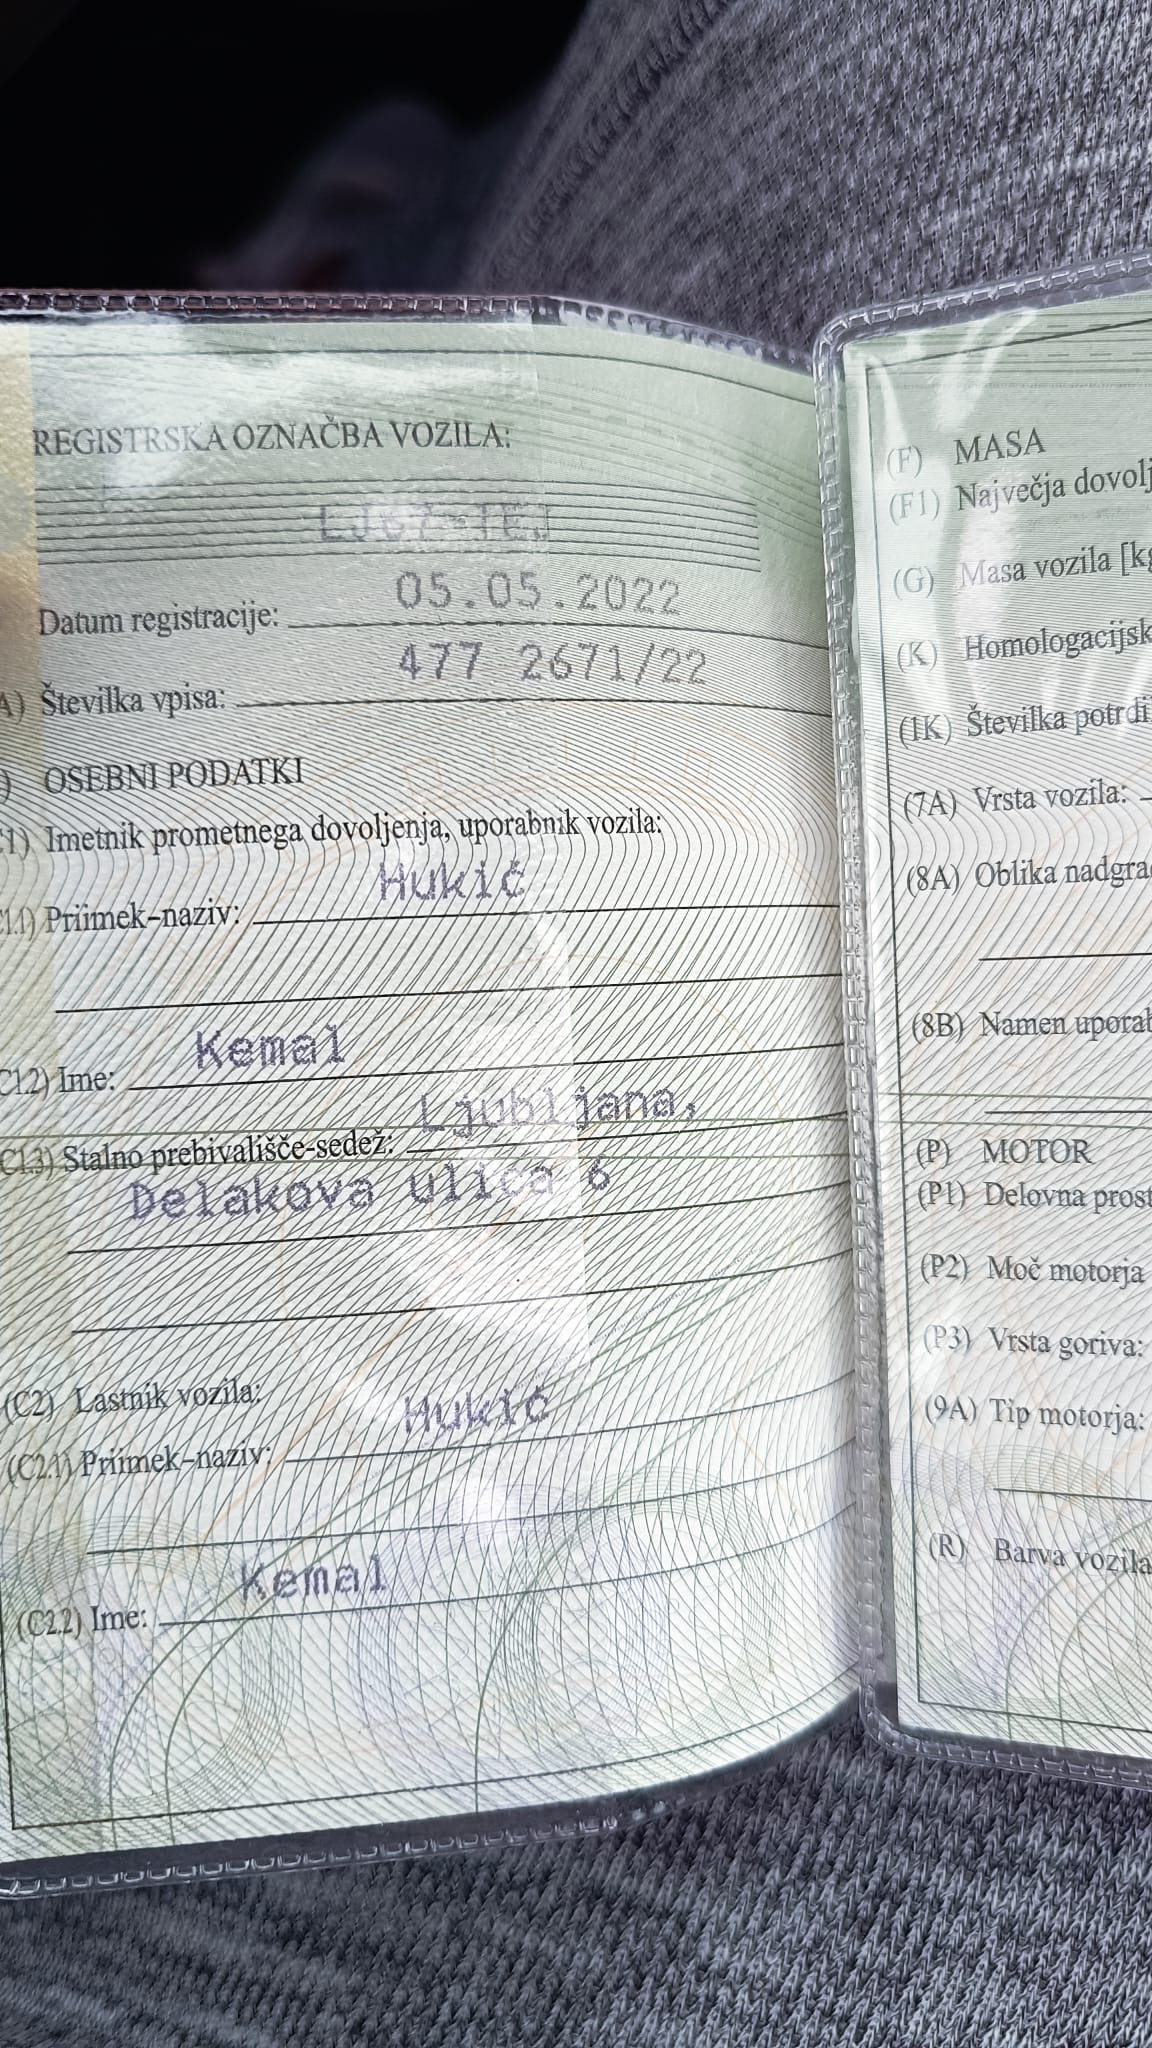 REGISTRSKA OZNAČBA VOZILA:
05.05.2022
Datum registracije:
477 2671/22
A) Številka vpisa:
) OSEBNI PODATKI
C1) Imetnik prometnega dovoljenja, uporabnik vozila:
Hukić
C1.1) Priimek–naziv:
Kemal
C1.2) Ime:
Ljubljana,
C1.3) Stalno prebivališče-sedež:
Delakova ulica 6
(C2) Lastnik vozila:
Hukić
(C2.1) Priimek–naziv:
Kemal
(C2.2) Ime:
(F) MASA
(F1) Največja dovolj
(G) Masa vozila [kg
(K) Homologacijsk
(1K) Številka potrdi
(7A) Vrsta vozila:
(8A) Oblika nadgra
(8B) Namen uporab
(P) MOTOR
(P1) Delovna prost
(P2) Moč motorja
(P3) Vrsta goriva:
(9A) Tip motorja:
(R) Barva vozila